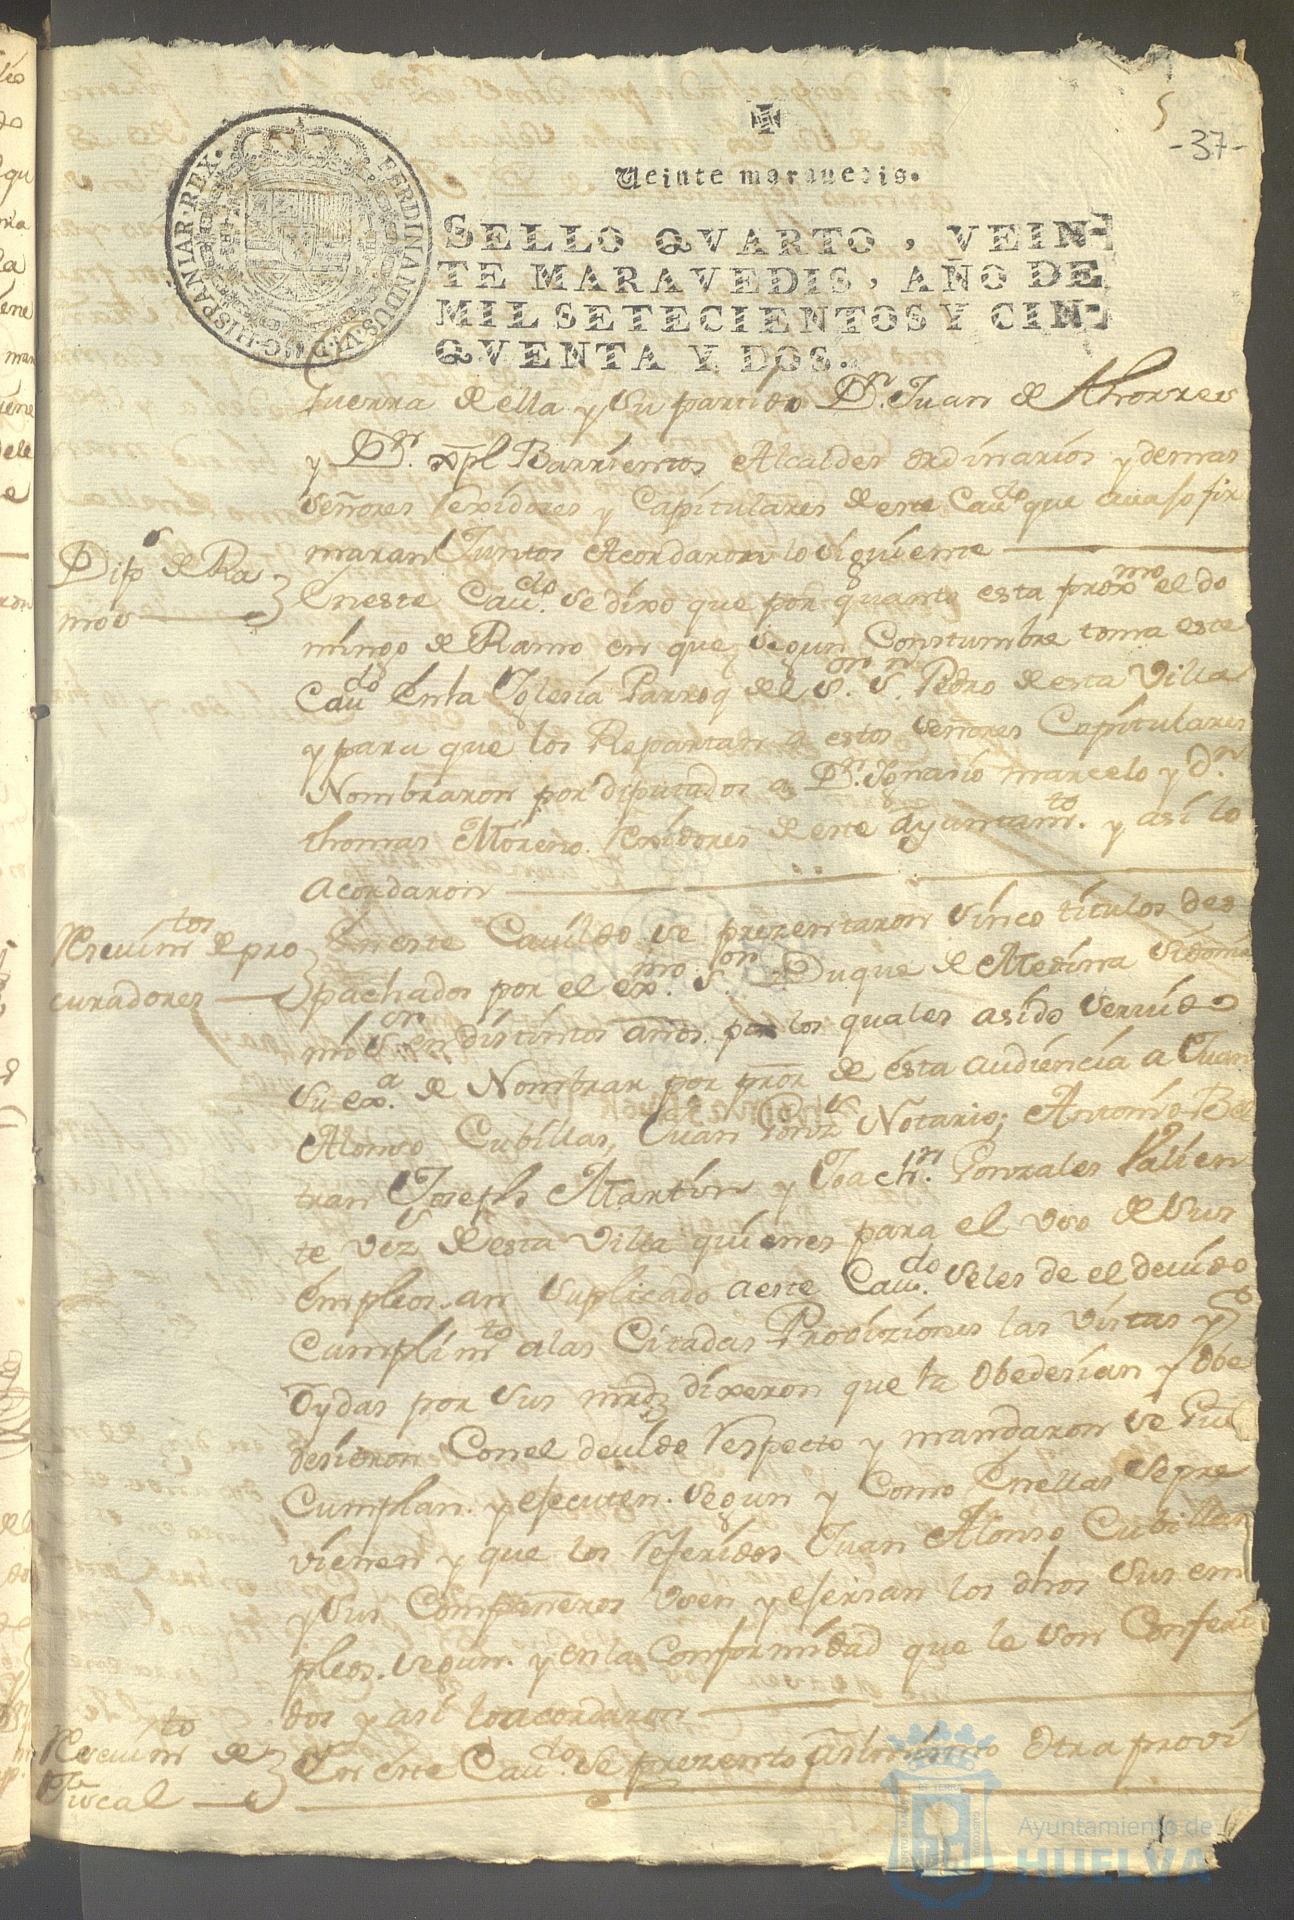 5
-37-
Veinte maravedis.
SELLO QVARTO, VEIN-
TE MARAVEDIS, AÑO DE
MIL SETECIENTOS Y CIN-
QVENTA Y DOS.
FERDINANDUS·VI·D·G·HISPANIAR·REX·
Guerra de ella y su partido Dn. Juan de Thorres
y Dn. Xpl Barrientos Alcaldes ordinarios y demas
señores Rexidores y Capitulares de este Cavdo que avaso fir
maran Juntos Acordaron lo siguiente
Dipos de Ra
mos
En este Cavdo. se dixo que por quanto esta proxmo el do
mingo de Ramo en que segun Constumbre toma este
Cavdo en la Iglesia Parroq del Sor. Sn. Pedro de esta Villa
y para que los Repartan a estos señores Capitulares
Nombraron por diputados a Dn. Ignasio marcelo y dn.
thomas Moreno Rexidores de este Ayuntamto. y asi lo
Acordaron
Resevimtos de pro
curadores
En este Cavildo se prezentaron sinco titulos des
pachados por el exmo. Sor. Duque de Medina Sidonia
mi Sor en distintos años por los quales asido servido
su exa. de Nombrar por pror de esta audiencia a Juan
Alonso Cubillas, Juan Gonz Notario; Antonio Bel
tran Joseph Martin y Joachn. Gonzales Valien
te vezs de esta Villa quienes para el uso de sus
empleos an suplicado a este Cavdo. se les de el devido
Cumplimto a las Citadas Proviziones las vistas y
Oydas por sus mrdz dixeron que la Obedesian y Obe
desieron Con el devido Respecto y mandaron se Gue
Cumplan y esecuten segun y Como En ellas se pre
vienen y que los Referidos Juan Alonso Cubillas
y sus Compañeros usen y esersan los dhos sus em
pleos segun y en la Conformidad que le son Conferi
dos y asi lo acordaron
Resevimto de
Fiscal
En este Cavdo. se prezento asimismo Otra provi
Ayuntamiento de
HUELVA